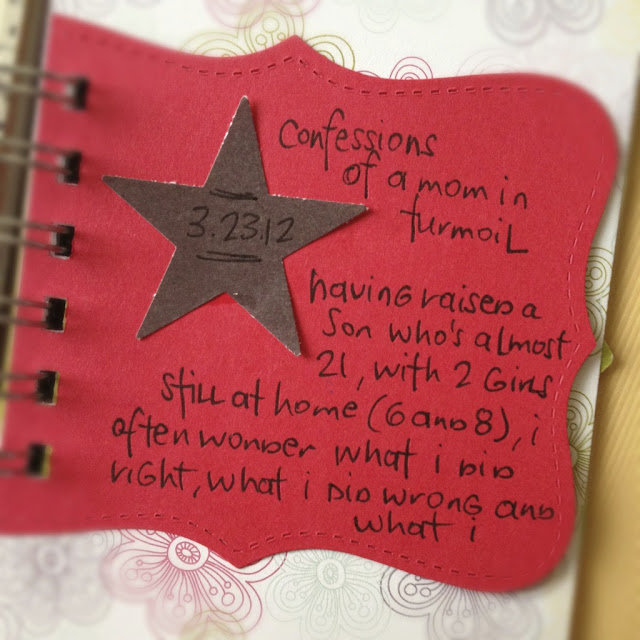 3.23.12
Confessions
of a mom in
turmoil
having raised a
son who's almost
21, with 2 girls
still at home (6 and 8), i
often wonder what i did
right, what i did wrong and
what i